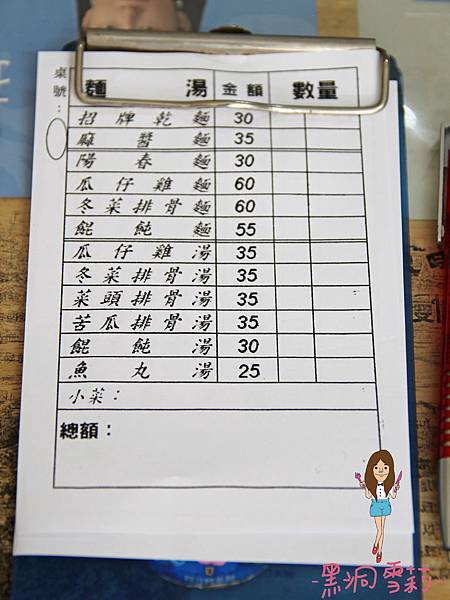 桌號：
麵 湯 金額 數量
招牌乾麵 30
麻醬麵 35
陽春麵 30
瓜仔雞麵 60
冬菜排骨麵 60
餛飩麵 55
瓜仔雞湯 35
冬菜排骨湯 35
菜頭排骨湯 35
苦瓜排骨湯 35
餛飩湯 30
魚丸湯 25
小菜：
總額：
-黑洞雪莉-